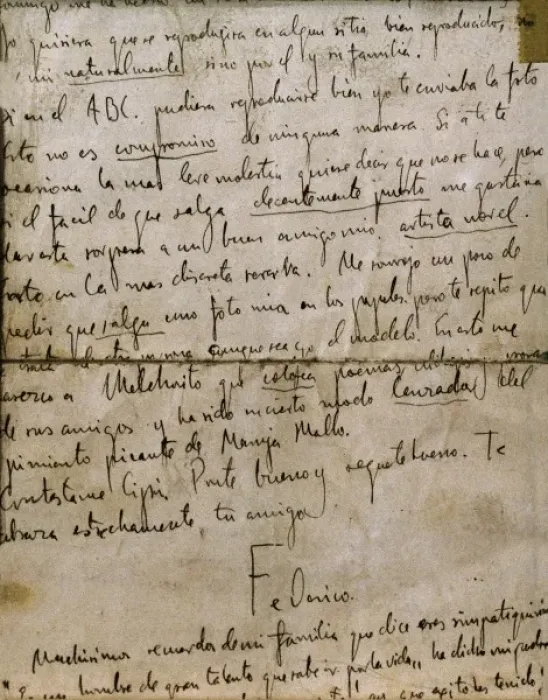 yo quisiera que se reprodujera en algun sitio bien reproducido, no
mi naturalmente sino por el y su familia.
Si en el ABC. pudiera reproducirse bien yo te enviaba la foto
Esto no es compromiso de ninguna manera. Si a ti te
ocasiona la mas leve molestia quiere decir que no se hace, pero
si es facil de que salga decentemente puesto me gustaria
dar esta sorpresa a un buen amigo mio, artista novel.
Todo en la mas discreta reserva. Me sonrojo un poco de
pedir que salga una foto mia en los papeles. pero te repito que
aunque sea yo el modelo. En esto me
a Melchorito que coloca poemas
de sus amigos y ha sido en cierto modo del
pimiento picante de Maruja Mallo.
Contestame Cipri. Ponte bueno y requetebueno. Te
abraza estrechamente, tu amigo
Federico.
Muchisimos recuerdos de mi familia que dice eres simpatiquisimo
hombre de gran talento que sabe ir por la vida", ha dicho mi padre
que exito has tenido!